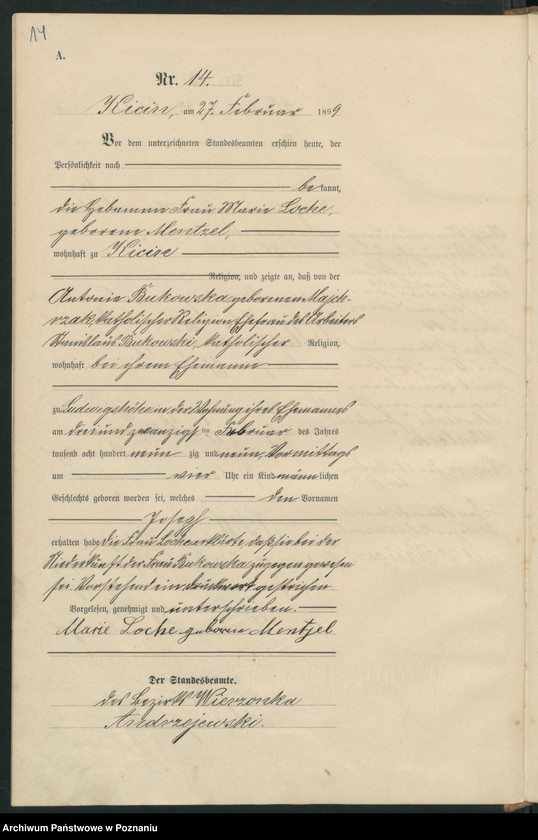 14
A.
Nr. 14.
Kicin, am 27. Februar 1899
Vor dem unterzeichneten Standesbeamten erschien heute, der
Persönlichkeit nach
bekannt,
die Hebamme Frau Marie Loche,
geborene Mentzel,
wohnhaft zu Kicin
Religion, und zeigte an, daß von der
Antonie Bukowska geborenen Majch-
rzak, katholischer Religion Ehefrau des Arbeiters
Stanislaus Bukowski, katholischer Religion,
wohnhaft bei ihrem Ehemanne
zu Ludwigshöhe in der Wohnung ihres Ehemannes
am dreiundzwanzigsten Februar des Jahres
tausend acht hundert neunzig und neun, Vormittags
um vier Uhr ein Kind männlichen
Geschlechts geboren worden sei, welches den Vornamen
Joseph
erhalten habe die Frau Loche erklärte, daß sie bei der
Niederkunft der Frau Bukowska zugegen gewesen
sei. Vorstehend ein Druckwort gestrichen.
Vorgelesen, genehmigt und unterschrieben.
Marie Loche geboren Mentzel
Der Standesbeamte.
des Bezirks Wierzonka
Andrzejewski.
Archiwum Państwowe w Poznaniu